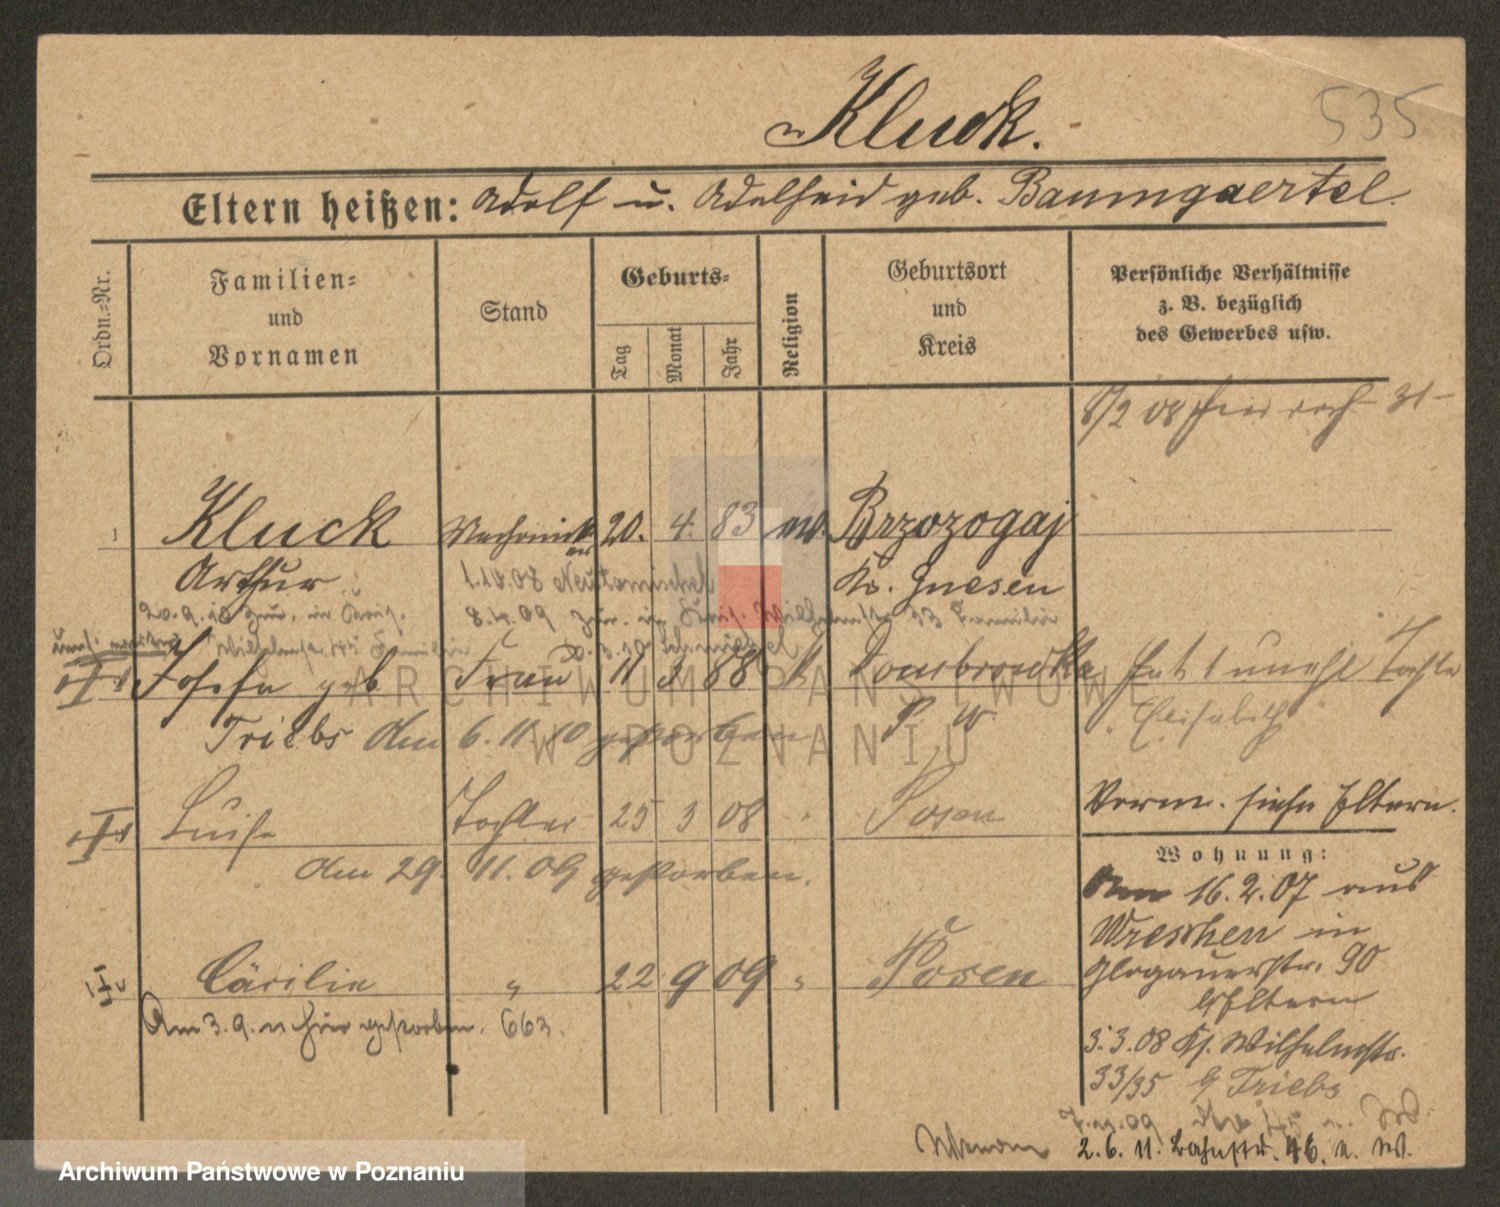 Kluck.
535
Eltern heißen: Adolf u. Adelheid geb. Baumgaertel.
Ordn.-Nr.
Familien- und Vornamen
Stand
Geburts-
Tag
Monat
Jahr
Religion
Geburtsort und Kreis
Persönliche Verhältnisse z. B. bezüglich des Gewerbes usw.
8/2 08
1 Kluck Mechanik er 20. 4. 83 ev. Brzozogaj
Arthur 1.10.08 Neutomischel Kr. Gnesen
20.9.10 zur. in Kreis. 8.4.09 zur. in Wilhelmstr. 33 Familie
Wilhelmstr. Familie Schmiegel
Josefa geb Frau 11 3 88 k Dombrowka hat 1 unehl Tochter
Triebs am 6.11.10 gestorben P. W. Elisabeth
Luise Tochter 25 3 08 " Posen
am 29. 11. 09 gestorben.
Verm. siehe Eltern.
Wohnung:
Am 16.2.07 aus
Wreschen in
Glogauerstr. 90
b/Eltern
Cäcilie " 22 9 09 " Posen
Am 3.9. 11 hier gestorben. 663.
3.3.08 Kg. Wilhelmstr.
33/35 b/ Triebs
7.11.09
2.6.11. Bahnstr. 46. n. W.
ARCHIWUM PAŃSTWOWE
W POZNANIU
Archiwum Państwowe w Poznaniu